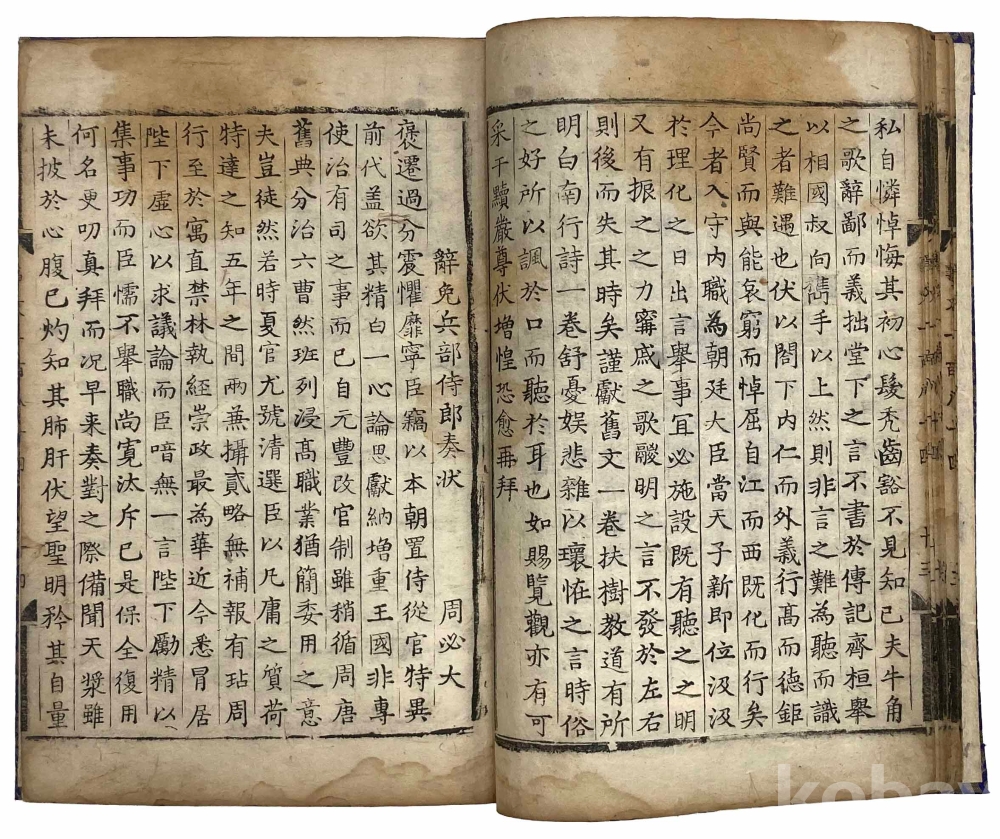 私自憐悼悔其初心髮禿齒豁不見知己夫牛角
之歌辭鄙而義拙堂下之言不書於傳記齊桓舉
以相國叔向攜手以上然則非言之難為聽而識
之者難遇也伏以閤下内仁而外義行髙而德鉅
尚賢而與能哀窮而悼屈自江而西既化而行矣
今者入守内職為朝廷大臣當天子新即位汲汲
於理化之日出言舉事冝必施設既有聽之之明
又有振之之力寗戚之歌鬷明之言不發於左右
則後而失其時矣謹獻舊文一卷扶樹教道有所
明白南行詩一卷舒憂娯悲雜以瓌恠之言時俗
之好所以諷於口而聽於耳也如賜覽觀亦有可
采干黷嚴尊伏増惶恐愈再拜
辭免兵部侍郎奏状
周必大
褒遷過分震懼靡寧臣竊以本朝置侍從官特異
前代盖欲其精白一心論思獻納増重王國非專
使治有司之事而已自元豐改官制雖稍循周唐
舊典分治六曹然班列浸髙職業猶簡委用之意
夫豈徒然若時夏官尤號清選臣以凡庸之質荷
特達之知五年之間兩兼攝貳略無補報有玷周
行至於寓直禁林執經崇政最為華近今悉冒居
陛下虚心以求議論而臣喑無一言陛下勵精以
集事功而臣懦不舉職尚寛汰斥已是保全復用
何名更叨真拜而况早来奏對之際備聞天奬雖
未披於心腹已灼知其肺肝伏望聖明矜其自量